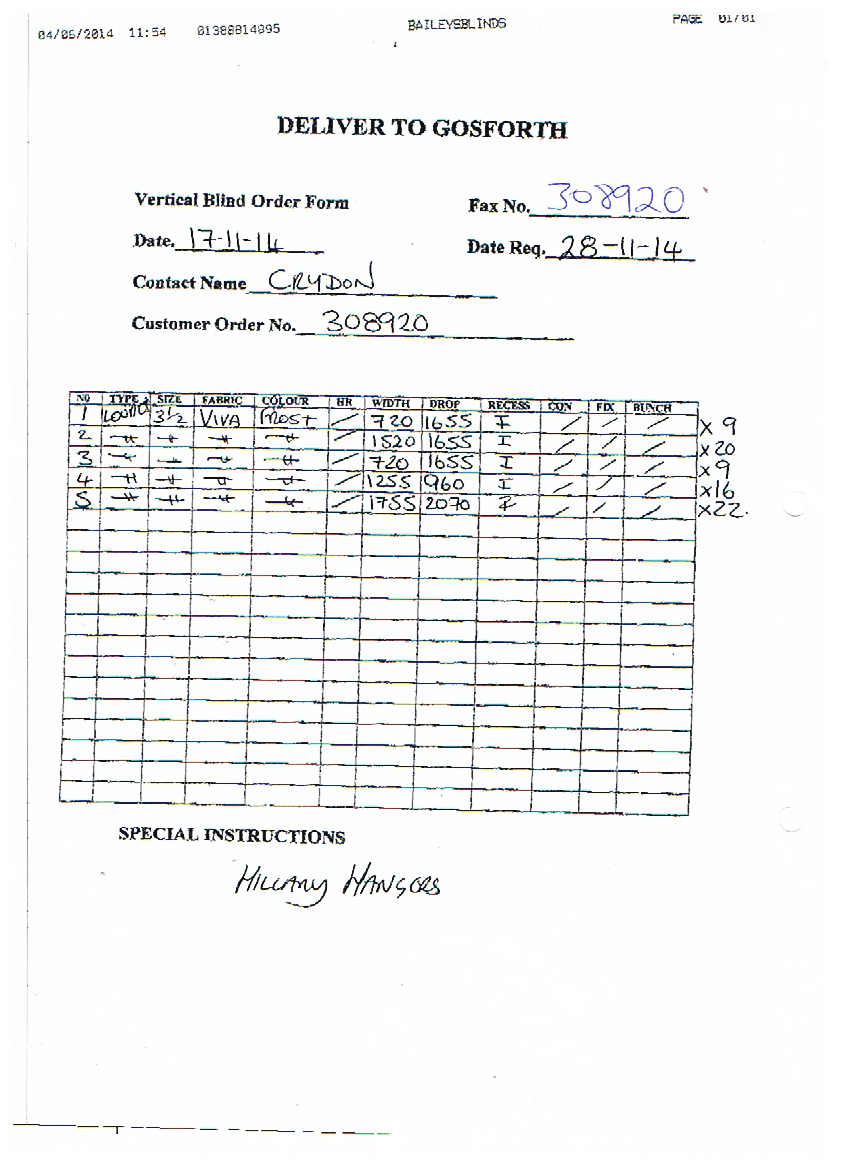 04/05/2014 11:54 01388814895 BAILEYSBLINDS PAGE 01/01
DELIVER TO GOSFORTH
Vertical Blind Order Form Fax No. 308920
Date. 17-11-14 Date Req. 28-11-14
Contact Name CRYDON
Customer Order No. 308920
NO TYPE SIZE FABRIC COLOUR HR WIDTH DROP RECESS CON FIX BUNCH
1 3½ VIVA / 720 1655 I / / / x 9
2 –〃– –〃– –〃– –〃– / 1520 1655 I / / / x 20
3 –〃– –〃– –〃– –〃– / 720 1655 I / / / x 9
4 –〃– –〃– –〃– –〃– / 1255 960 I / / / x16
5 –〃– –〃– –〃– –〃– / 1755 2070 / / / x22.
SPECIAL INSTRUCTIONS
HILLARY HANGERS